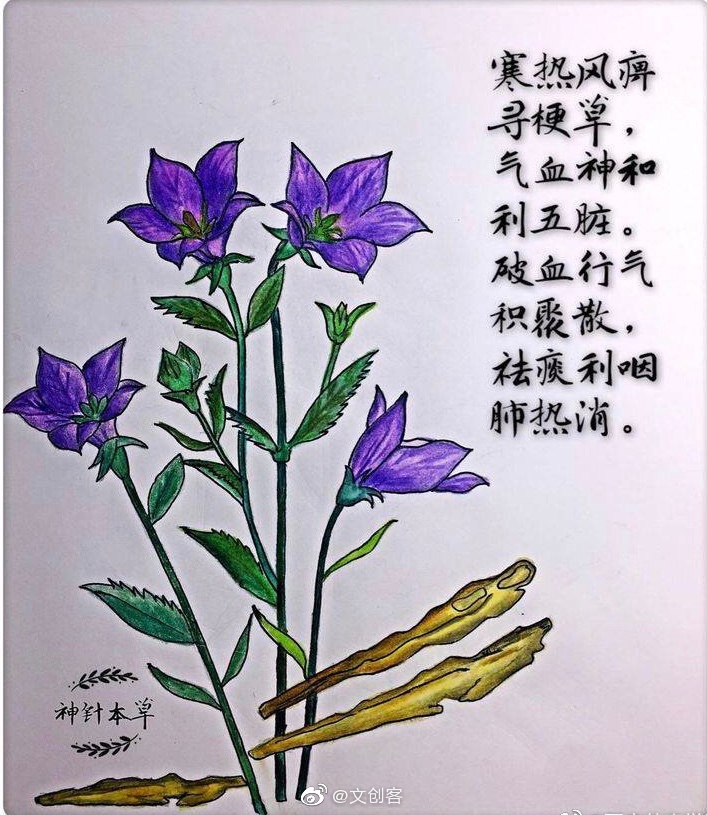 寒热风痹
寻梗草，
气血神和
利五脏。
破血行气
积聚散，
祛痰利咽
肺热消。
神针本草
@文创客